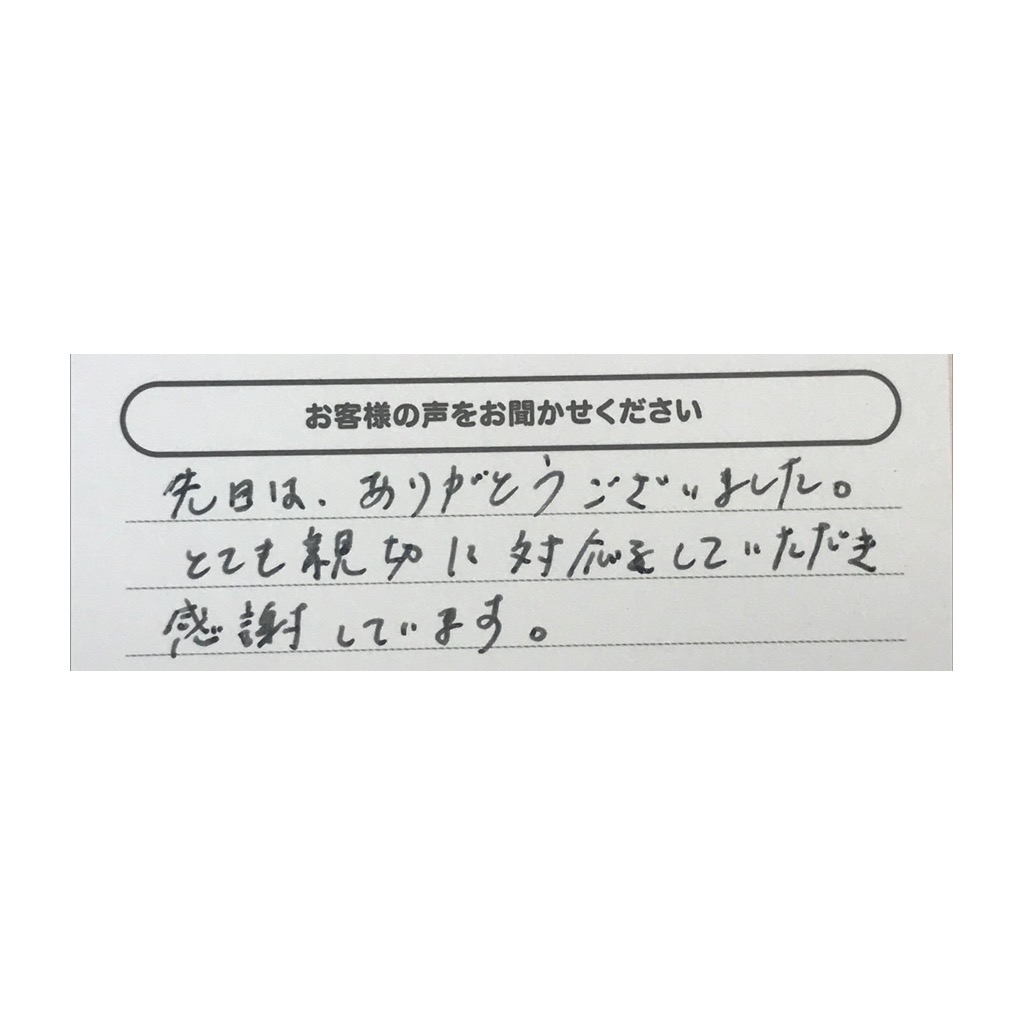 お客様の声をお聞かせください
先日は、ありがとうございました。
とても親切に対応をしていただき
感謝しています。